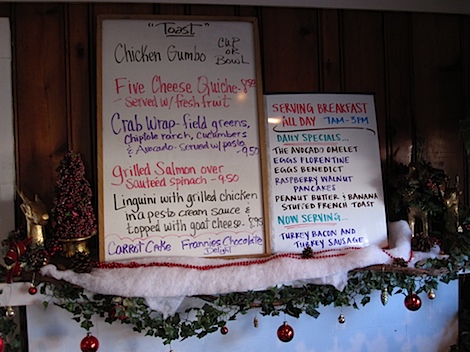 "Toast"
Chicken Gumbo CUP OR BOWL
Five Cheese Quiche - 8.50
Served w/ fresh fruit
Crab Wrap - field greens,
chiplote ranch, cucumbers
& Avocado - Served w/ pesto
- 9.50
Grilled Salmon over
Sauteéd spinach - 9.50
Linguini with grilled chicken
in a pesto cream sauce &
topped with goat cheese - 8.95
Carrot Cake Frannies Chocolate
Delight
SERVING BREAKFAST
ALL DAY 7AM-3PM
DAILY SPECIALS...
THE AVOCADO OMELET
EGGS FLORENTINE
EGGS BENEDICT
RASPBERRY WALNUT
PANCAKES
PEANUT BUTTER & BANANA
STUFFED FRENCH TOAST
NOW SERVING...
TURKEY BACON AND
TURKEY SAUSAGE